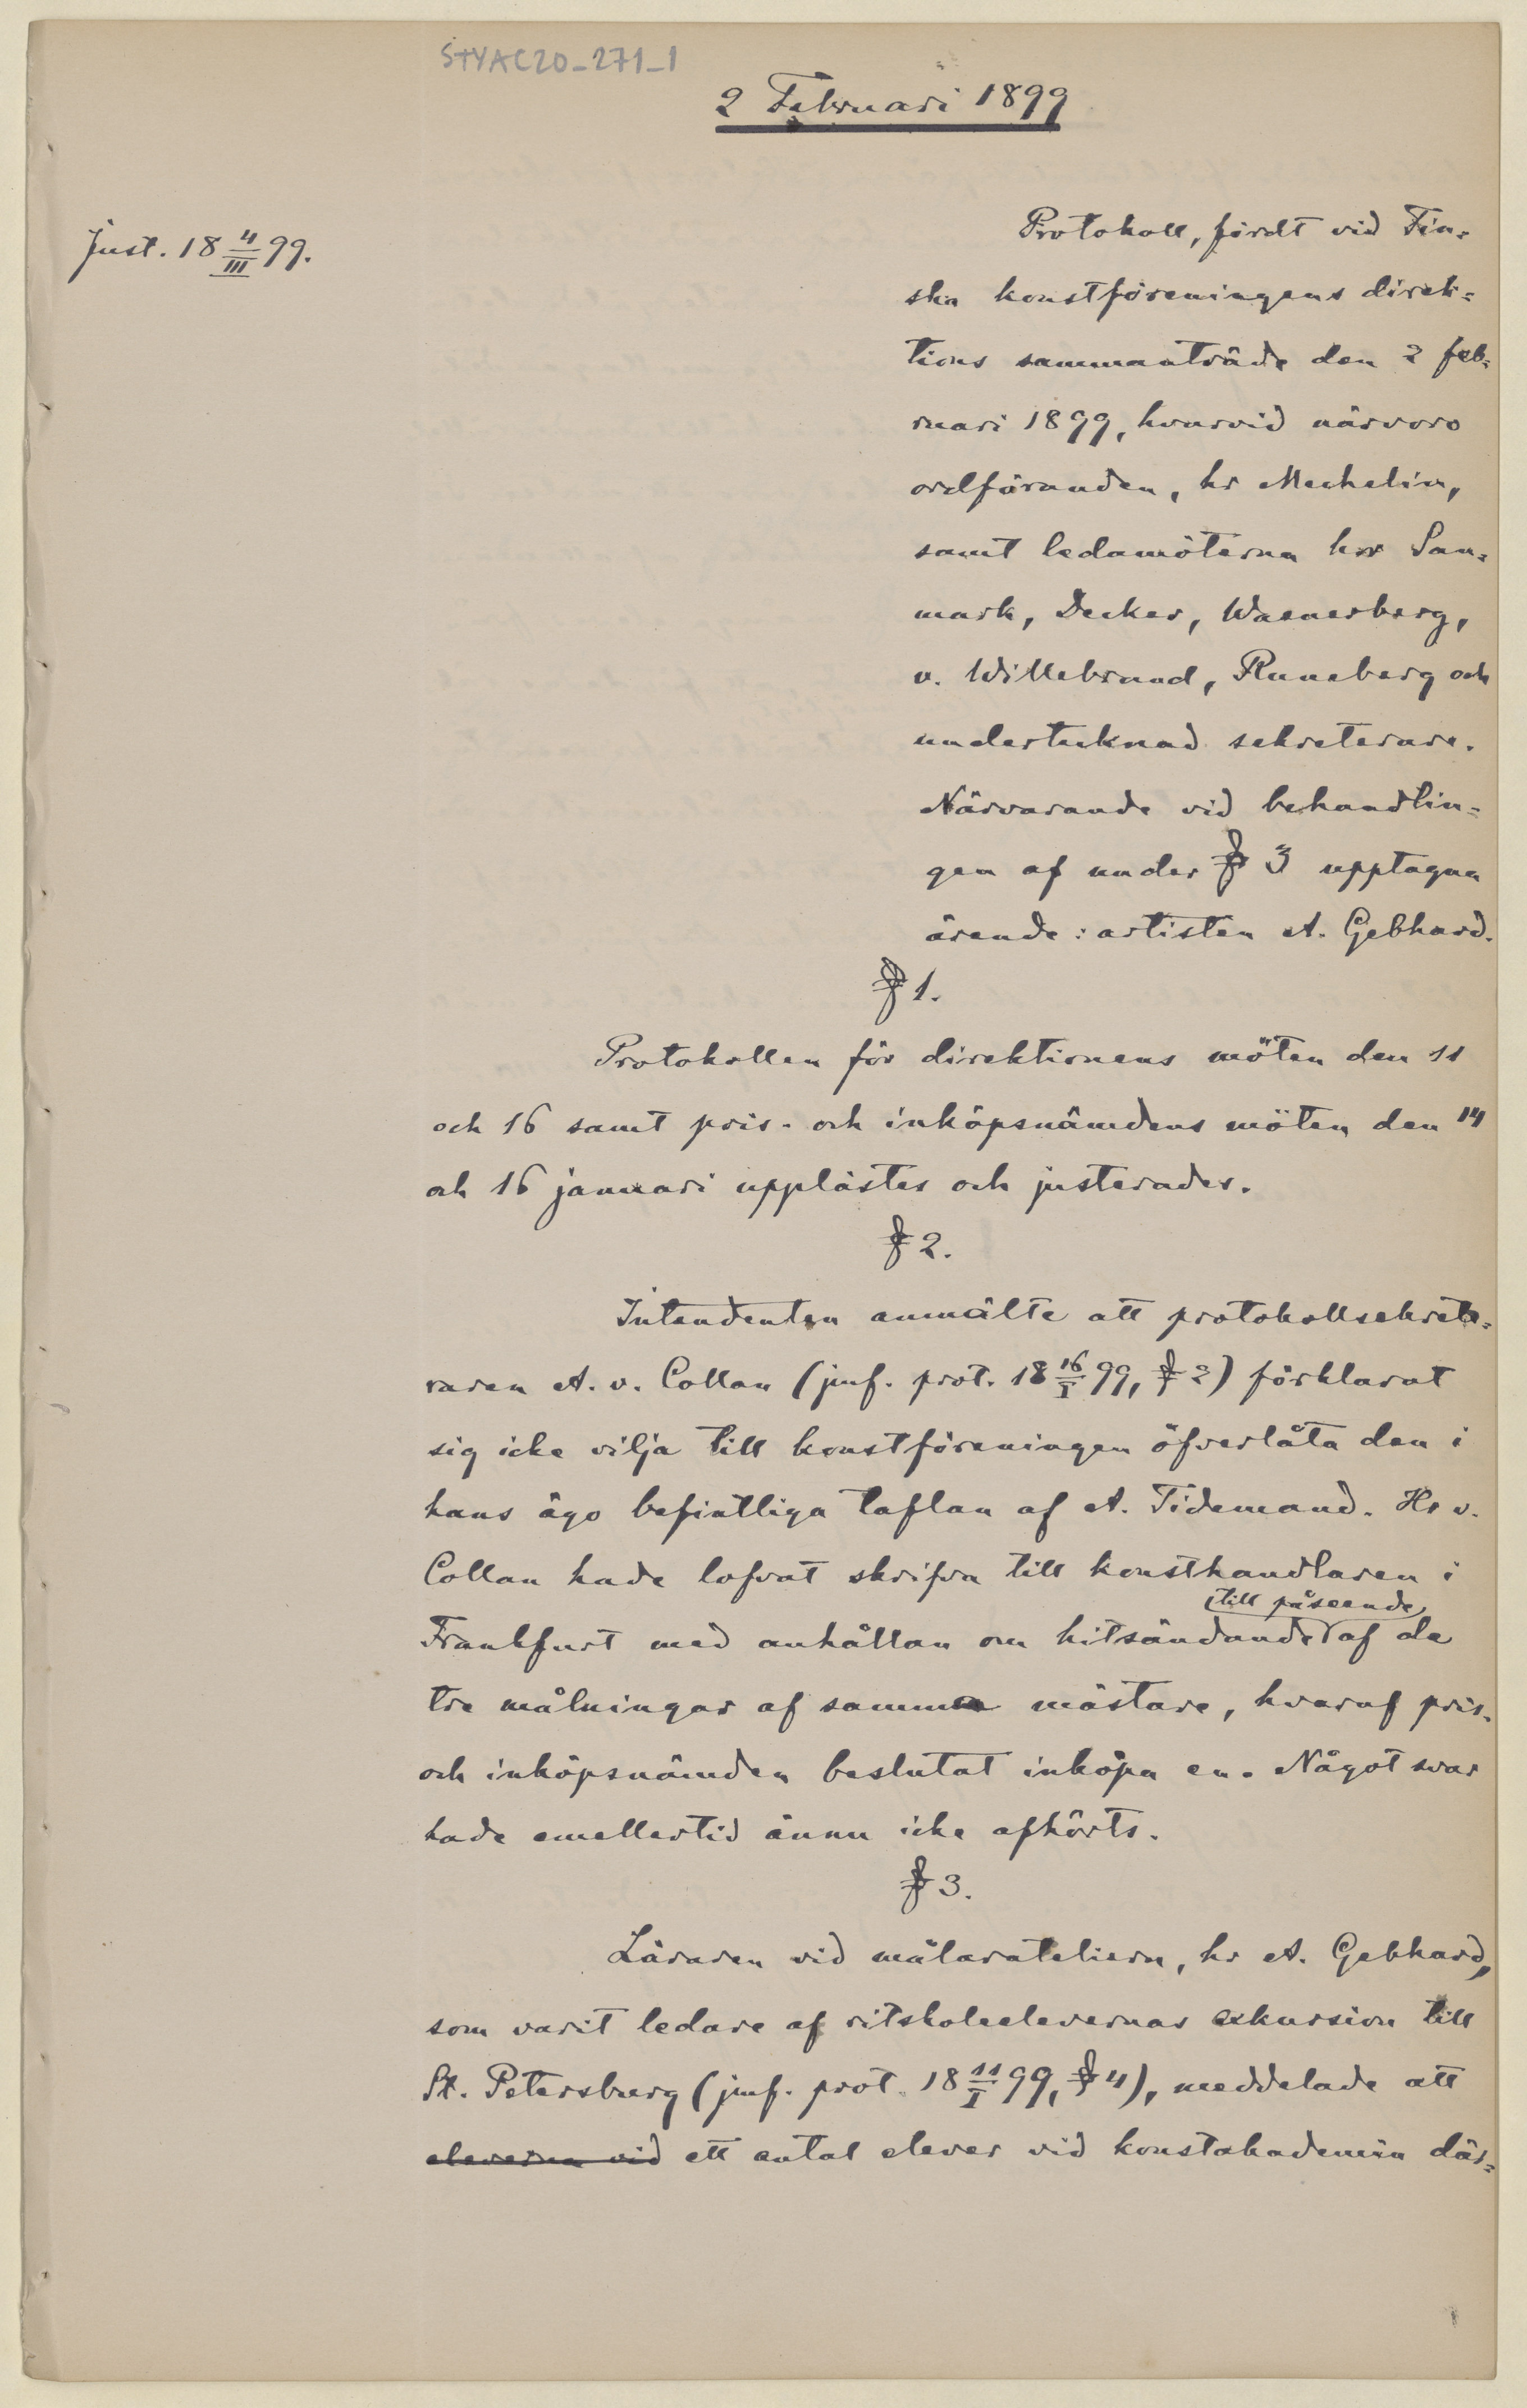 STYAC20_271_1
2 Februari 1899
Just. 18 4/III 99.
Protokoll, fördt vid Fin=
ska konstföreningens direk=
tions sammanträde den 2 feb=
ruari 1899, hvarvid närvoro
ordföranden, hr Mechelin,
samt ledamöterna hrr San=
mark, Decker, Wasenberg,
v. Willebrand, Runeberg och
undertecknad sekreterare.
Närvarande vid behandlin=
gen af under § 3 upptagna
ärende: artisten A. Gebhard.
§ 1.
Protokollen för direktionens möten den 11
och 16 samt pris- och inköpsnämdens möten den 14
och 16 januari upplästes och justerades.
§ 2.
Intendenten anmälte att protokollsekrete=
raren A. v. Collan (jmf. prot. 18 16/I 99, § 2) förklarat
sig icke vilja till konstföreningen öfverlåta den i
hans ägo befintliga taflan af A. Tidemand. Hr v.
Collan hade lofvat skrifva till konsthandlaren i
till påseende
Frankfurt med anhållan om hitsändande af de
tre målningar af samma mästare, hvaraf pris-
och inköpsnämden beslutat inköpa en. Något svar
hade emellertid ännu icke afhörts.
§ 3.
Läraren vid målarateliern, hr A. Gebhard,
som varit ledare af ritskoleelevernas exkursion till
St. Petersburg (jmf. prot. 18 11/I 99, § 4), meddelade att
eleverna vid ett antal elever vid konstakademin där=